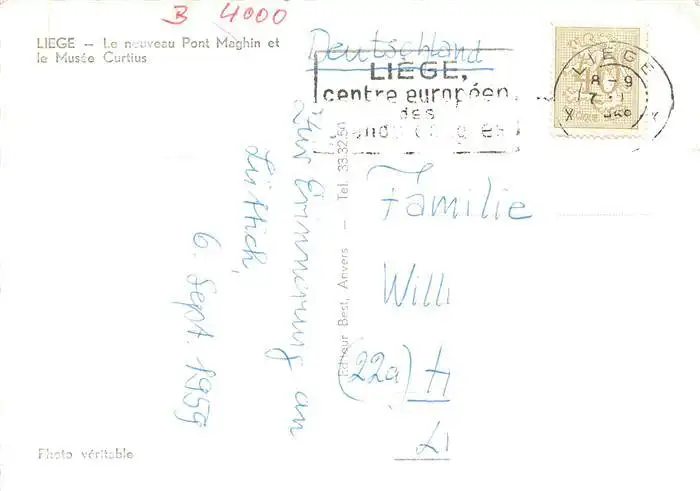 B 4000
LIEGE – Le nouveau Pont Maghin et
le Musée Curtius
Deutschland
LIÈGE,
centre européen
des
LIEGE
8-9
Zur Erinnerung an
Lüttich,
6. Sept. 1959
Editeur Best, Anvers — Tel. 33.32.50
Familie
Willi
(22a)
Photo véritable